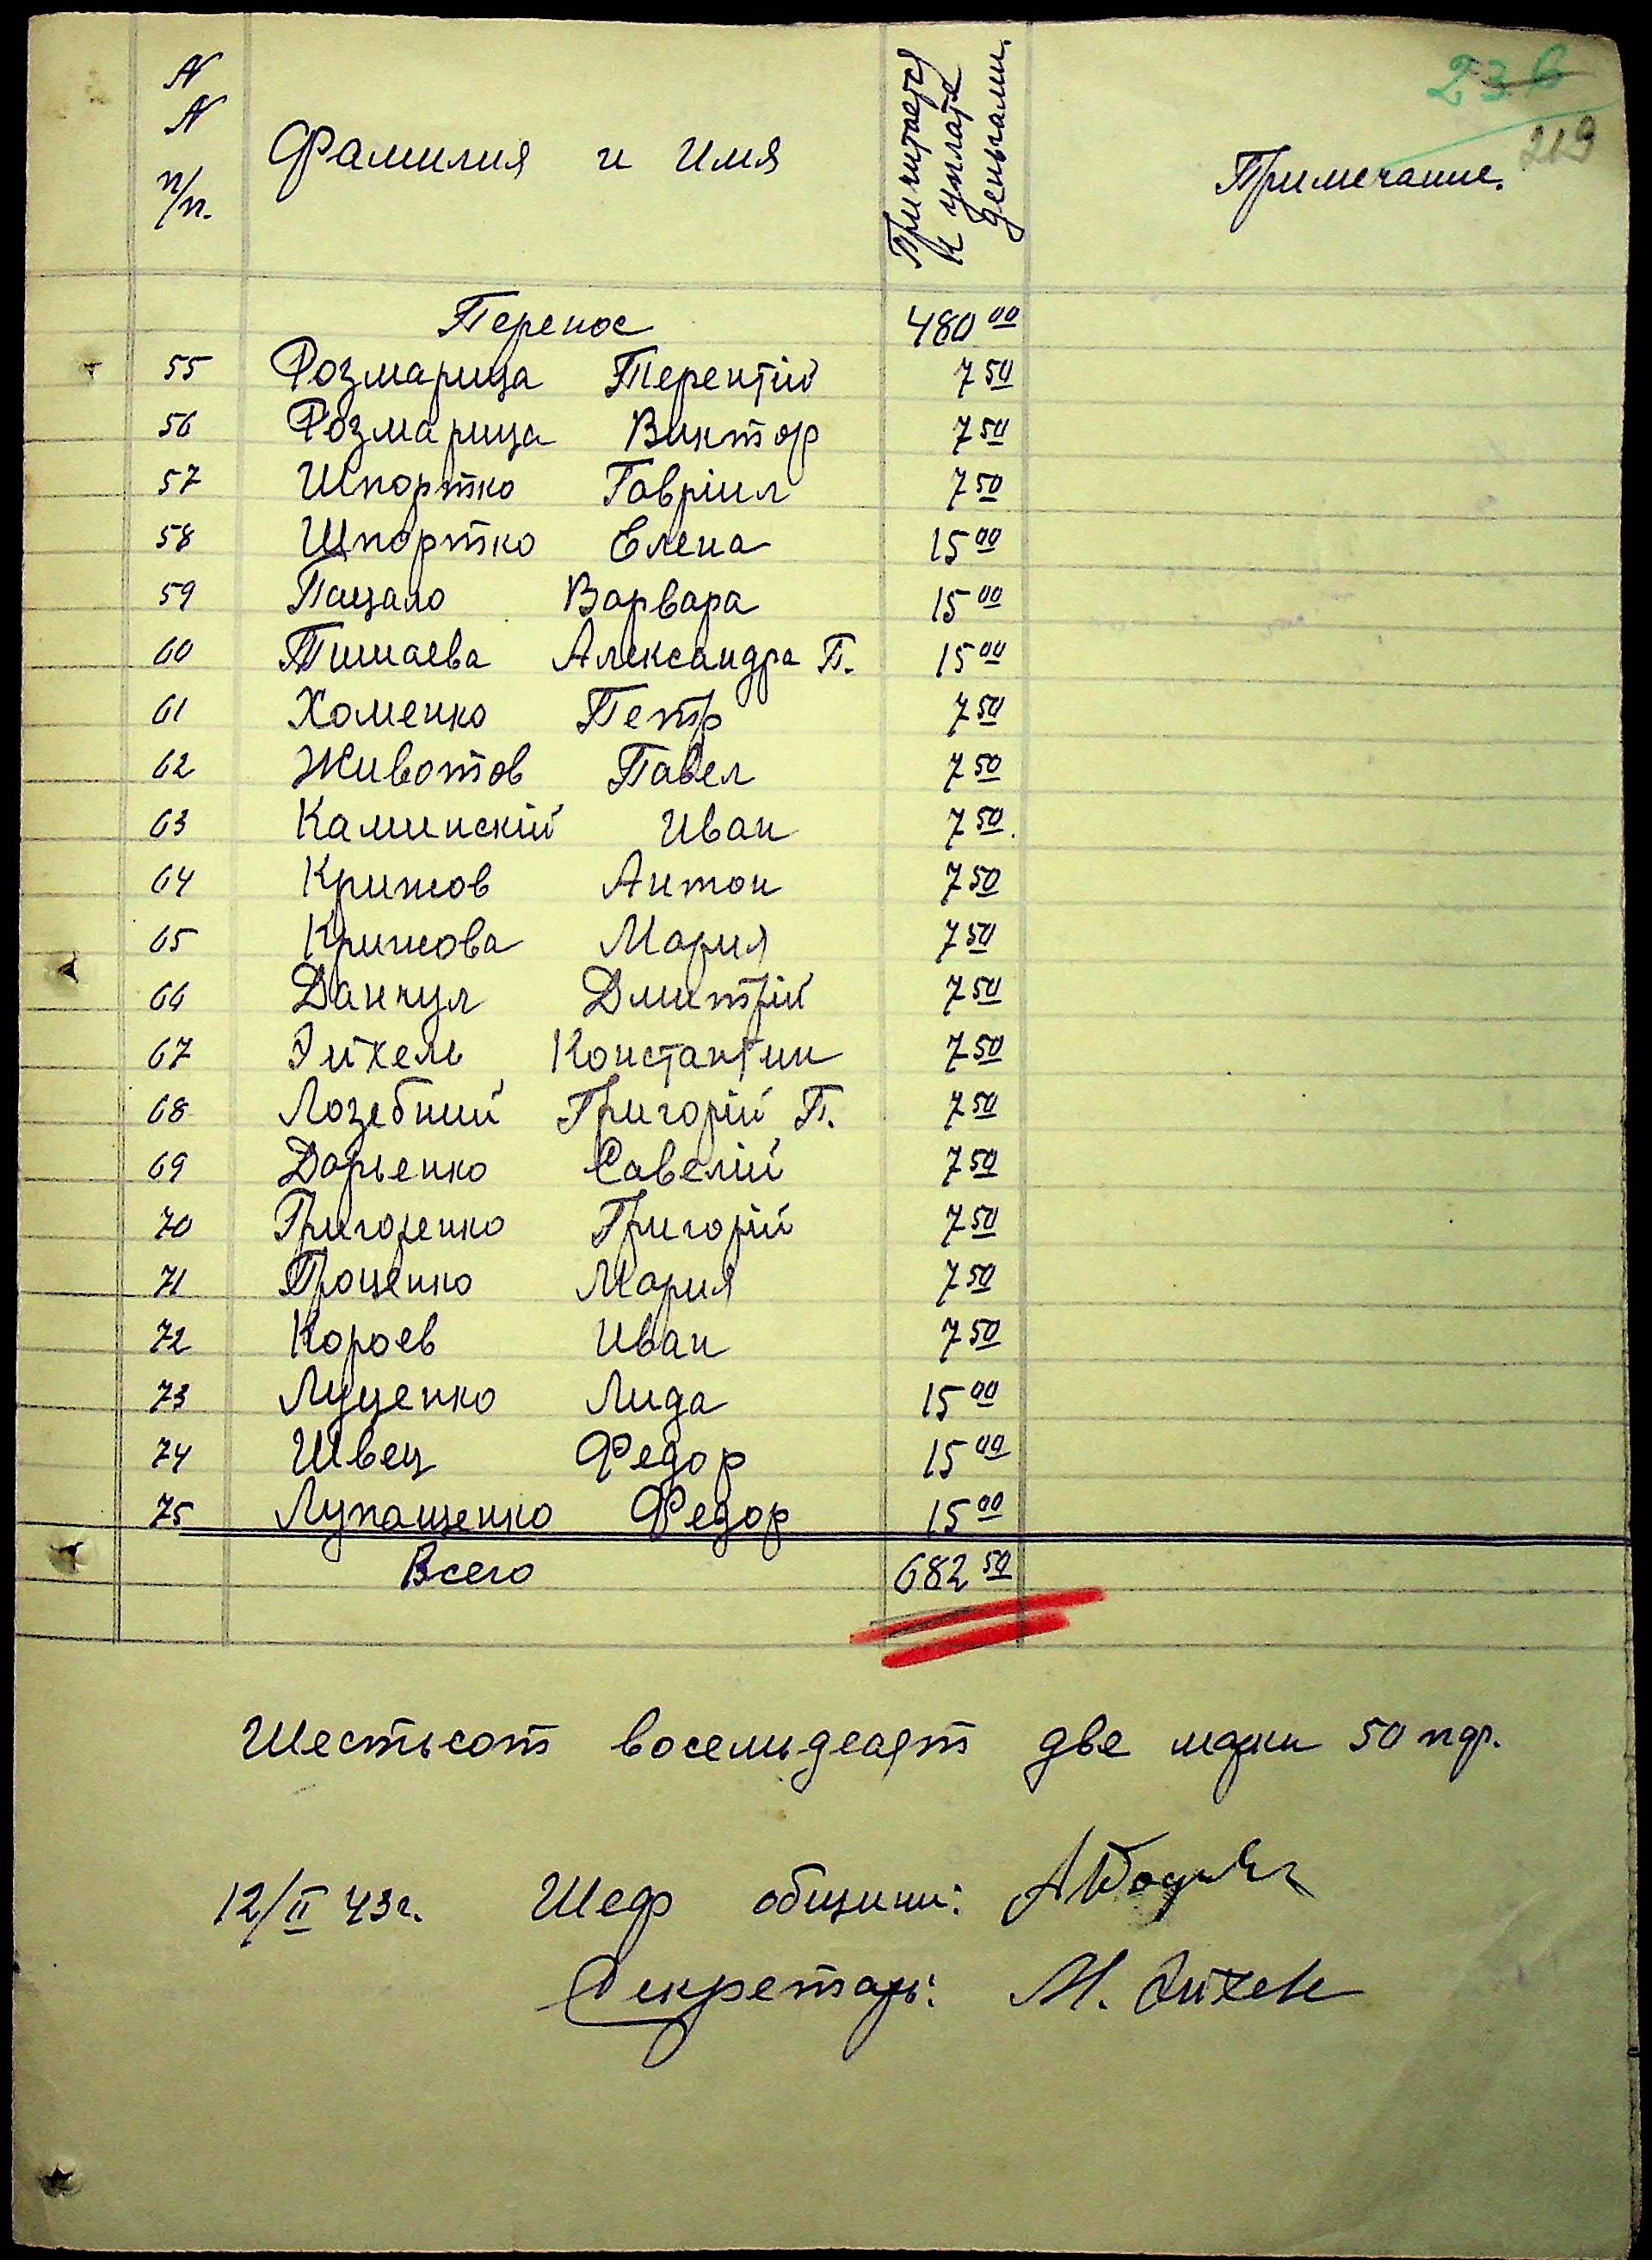 236
219
N N п/п. Фамилия и Имя Причитается к уплате деньгами. Примечание.
Перенос 480 00
55 Розмарица Терентій 7 50
56 Розмарица Виктор 7 50
57 Шпортко Гавріил 7 50
58 Шпортко Елена 15 00
59 Пацало Варвара 15 00
60 Тишаева Александра П. 15 00
61 Хоменко Петр 7 50
62 Животов Павел 7 50
63 Каминскій Иван 7 50
64 Крижов Антон 7 50
65 Крижова Мария 7 50
66 Данчул Дмитрій 7 50
67 Эйхель Константин 7 50
68 Лозебний Григорій П. 7 50
69 Дарьенко Савелій 7 50
70 Григоренко Григорій 7 50
71 Проценко Мария 7 50
72 Короев Иван 7 50
73 Луценко Лида 15 00
74 Швец Федор 15 00
75 Лупащенко Федор 15 00
Всего 682 50
Шестьсот восемьдесят две марки 50 пф.
12/II 43г. Шеф общини:
Секретарь: М. Эйхель